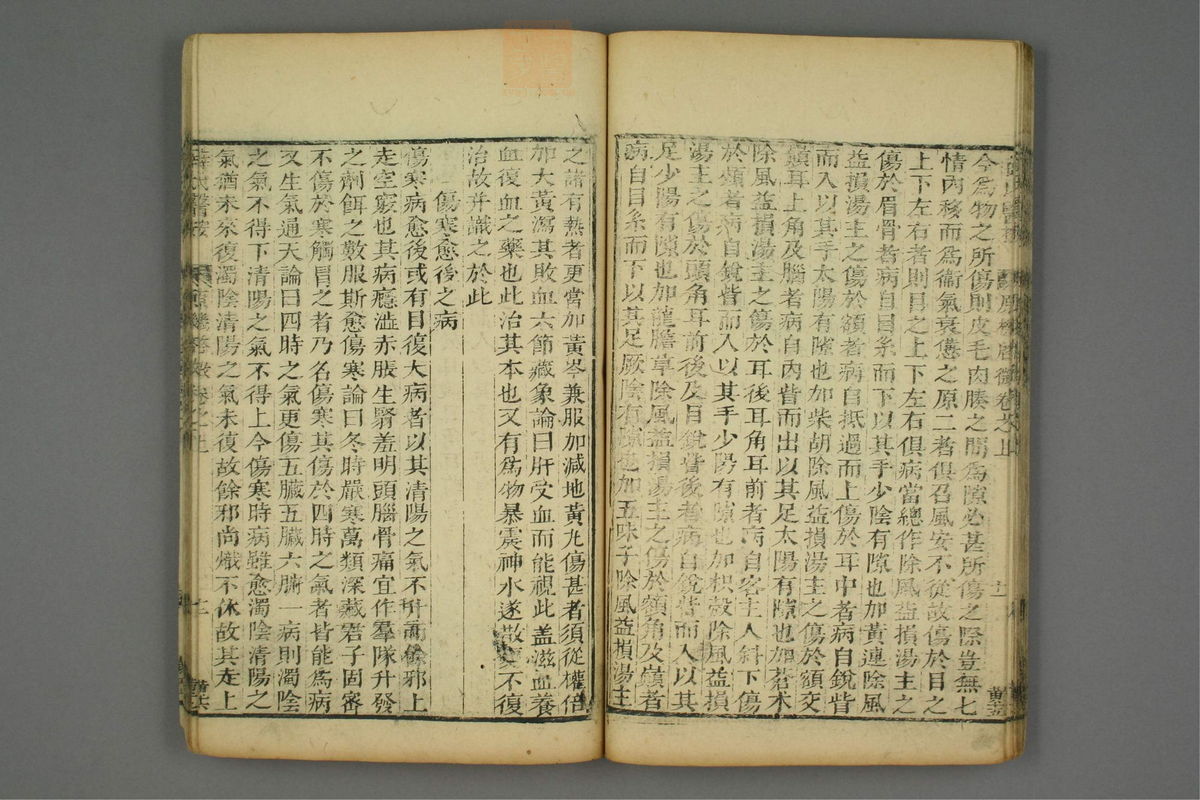 今爲物之所傷則皮毛肉腠之間爲隙必甚所傷之際豈無七
情內移而爲衞氣衰憊之原二者俱召風安不從故傷於目之
上下左右者則目之上下左右俱病當總作除風益損湯主之
傷於眉骨者病自目系而下以其手少陰有隙也加黃連除風
益損湯主之傷於額者病自抵過而上傷於耳中者病自銳眥
而入以其手太陽有隙也加柴胡除風益損湯主之傷於額交
巔耳上角及腦者病自內眥而出以其足太陽有隙也加蒼朮
除風益損湯主之傷於耳後耳角耳前者病自客主人斜下傷
於頰者病自銳眥而入以其手少陽有隙也加枳殼除風益損
湯主之傷於頭角耳前後及目銳眥後者病自銳眥而入以其
足少陽有隙也加龍膽草除風益損湯主之傷於額角及巔者
病自目系而下以其足厥陰有隙也加五味子除風益損湯主
之諸有熱者更當加黃芩兼服加減地黃丸傷甚者須從權倍
加大黃瀉其敗血六節藏象論曰肝受血而能視此蓋滋血養
血復血之藥也此治其本也又有爲物暴震神水遂散更不復
治故幷識之於此
傷寒愈後之病
傷寒病愈後或有目復大病者以其清陽之氣不升而餘邪上
走空竅也其病癮澁赤脹生翳羞明頭腦骨痛宜作羣隊升發
之劑餌之數服斯愈傷寒論曰冬時嚴寒萬類深藏君子固密
不傷於寒觸冒之者乃名傷寒其傷於四時之氣者皆能爲病
又生氣通天論曰四時之氣更傷五臟五臟六腑一病則濁陰
之氣不得下清陽之氣不得上今傷寒時病雖愈濁陰清陽之
氣猶未來復濁陰清陽之氣未復故餘邪尚熾不休故其走上